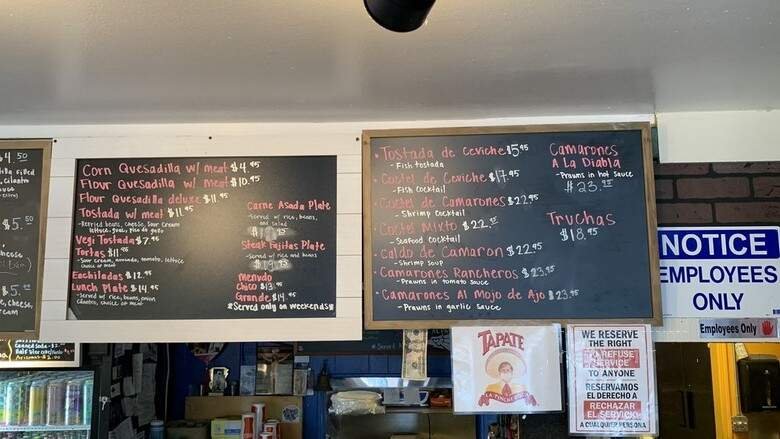 4.50
$5.50
$5.
Corn Quesadilla w/ meat $4.95
Flour Quesadilla w/ meat $10.95
Flour Quesadilla deluxe $11.95
Tostada w/ meat $11.95
- Refried beans, cheese, sour cream
lettuce, guac, pico de gallo
Vegi Tostada $7.95
Tortas $11.95
- Sour cream, avocado, tomato, lettuce
choice of meat
Enchiladas $12.95
Lunch Plate $14.95
- Served w/ rice, beans, onion
cilantro, choice of meat
Carne Asada Plate
- Served w/ rice, beans,
and salad
Steak Fajitas Plate
- Served w/ rice and beans
Menudo
Chico $13.95
Grande $14.95
*Served only on weekends!!
Tostada de Ceviche $5.95
- Fish tostada
Coctel de Ceviche $17.95
- Fish Cocktail
Coctel de Camarones $22.95
- Shrimp Cocktail
Coctel Mixto $22.95
- Seafood cocktail
Caldo de Camaron $22.95
- Shrimp soup
Camarones Rancheros $23.95
- Prawns in tomato sauce
Camarones Al Mojo de Ajo $23.95
- Prawns in garlic sauce
Camarones
A La Diabla
- Prawns in hot sauce
$23.95
Truchas
$18.95
NOTICE
EMPLOYEES
ONLY
Employees Only
TAPATE
WE RESERVE
THE RIGHT
TO REFUSE
SERVICE
TO ANYONE
RESERVAMOS
EL DERECHO A
RECHAZAR
EL SERVICIO
A CUALQUIER PERSONA